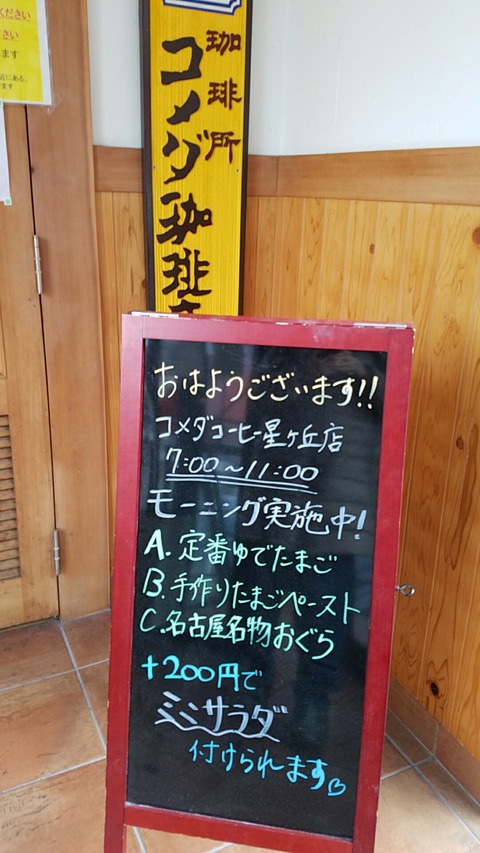 ください
さい
ます
近にある、
けます
珈琲所
コメダ珈琲
おはようございます!!
コメダコーヒー星ヶ丘店
7:00〜11:00
モーニング実施中!
A. 定番ゆでたまご
B. 手作りたまごペースト
C. 名古屋名物おぐら
+200円で
ミニサラダ
付けられます